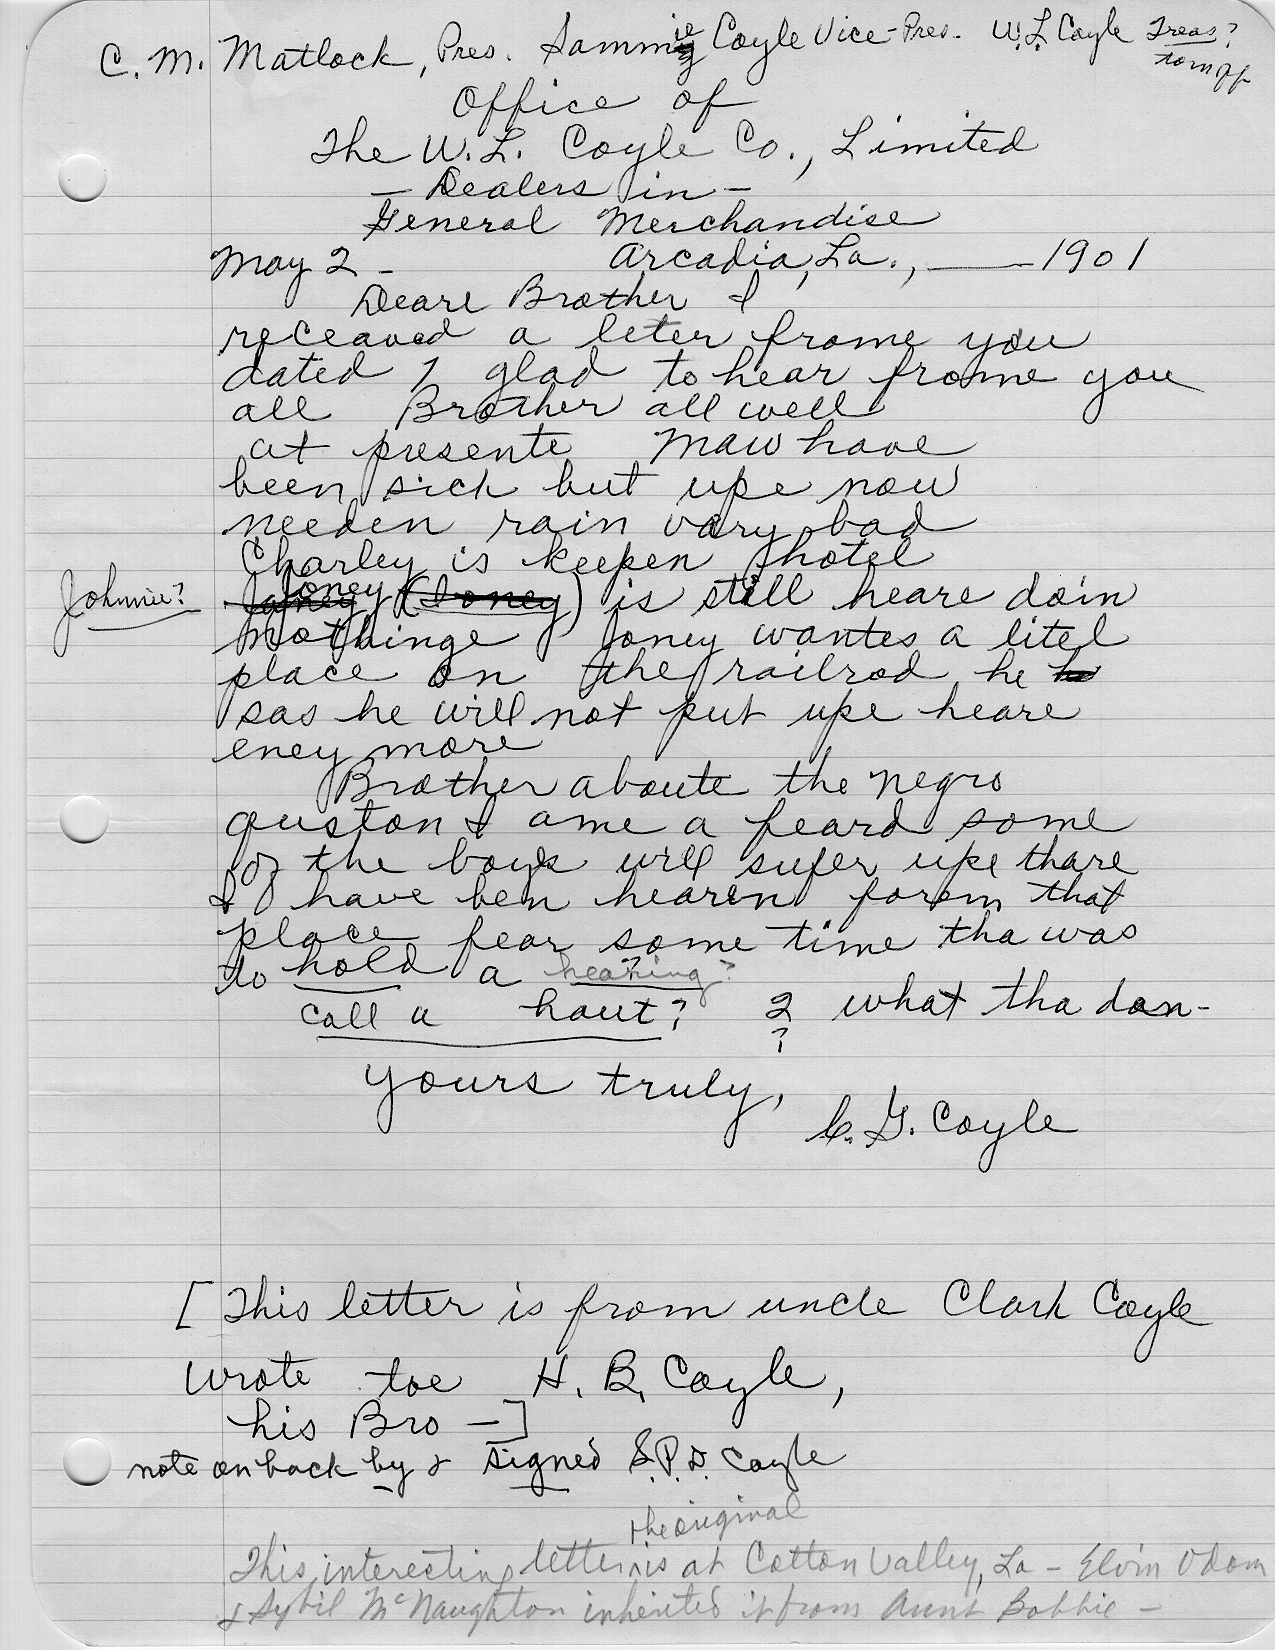 C. M. Matlock, Pres. Sammie Coyle Vice-Pres. W. L. Coyle Treas?
torn off
Office of
The W. L. Coyle Co., Limited
— Dealers in —
General Merchandise
May 2 - Arcadia, La., —— 1901
Deare Brother I
receaved a leter frome you
dated 7 glad to hear frome you
all Brother all well
at presente Maw have
been sick but upe now
needen rain vary bad
Charley is keepen hotel
Johnnie? Joney (Joney) is still heare doin
nothinge Joney wantes a litel
place on the railrod he
sas he will not put upe heare
eney more
Brother aboute the negro
quston I ame a feard some
of the boys will sufer upe thare
I have ben hearen forem that
place fear some time tha was
to hold a hearing?
call a haut? ? what tha don-
yours truly,
C. G. Coyle
[This letter is from uncle Clark Coyle
wrote toe H. B. Coyle,
his Bro —]
note on back by & signed S.P.D. Coyle
the original
This interesting letter is at Cotton Valley, La - Elvin Odom
& Sybil McNaughton inherited it from Aunt Bobbie —